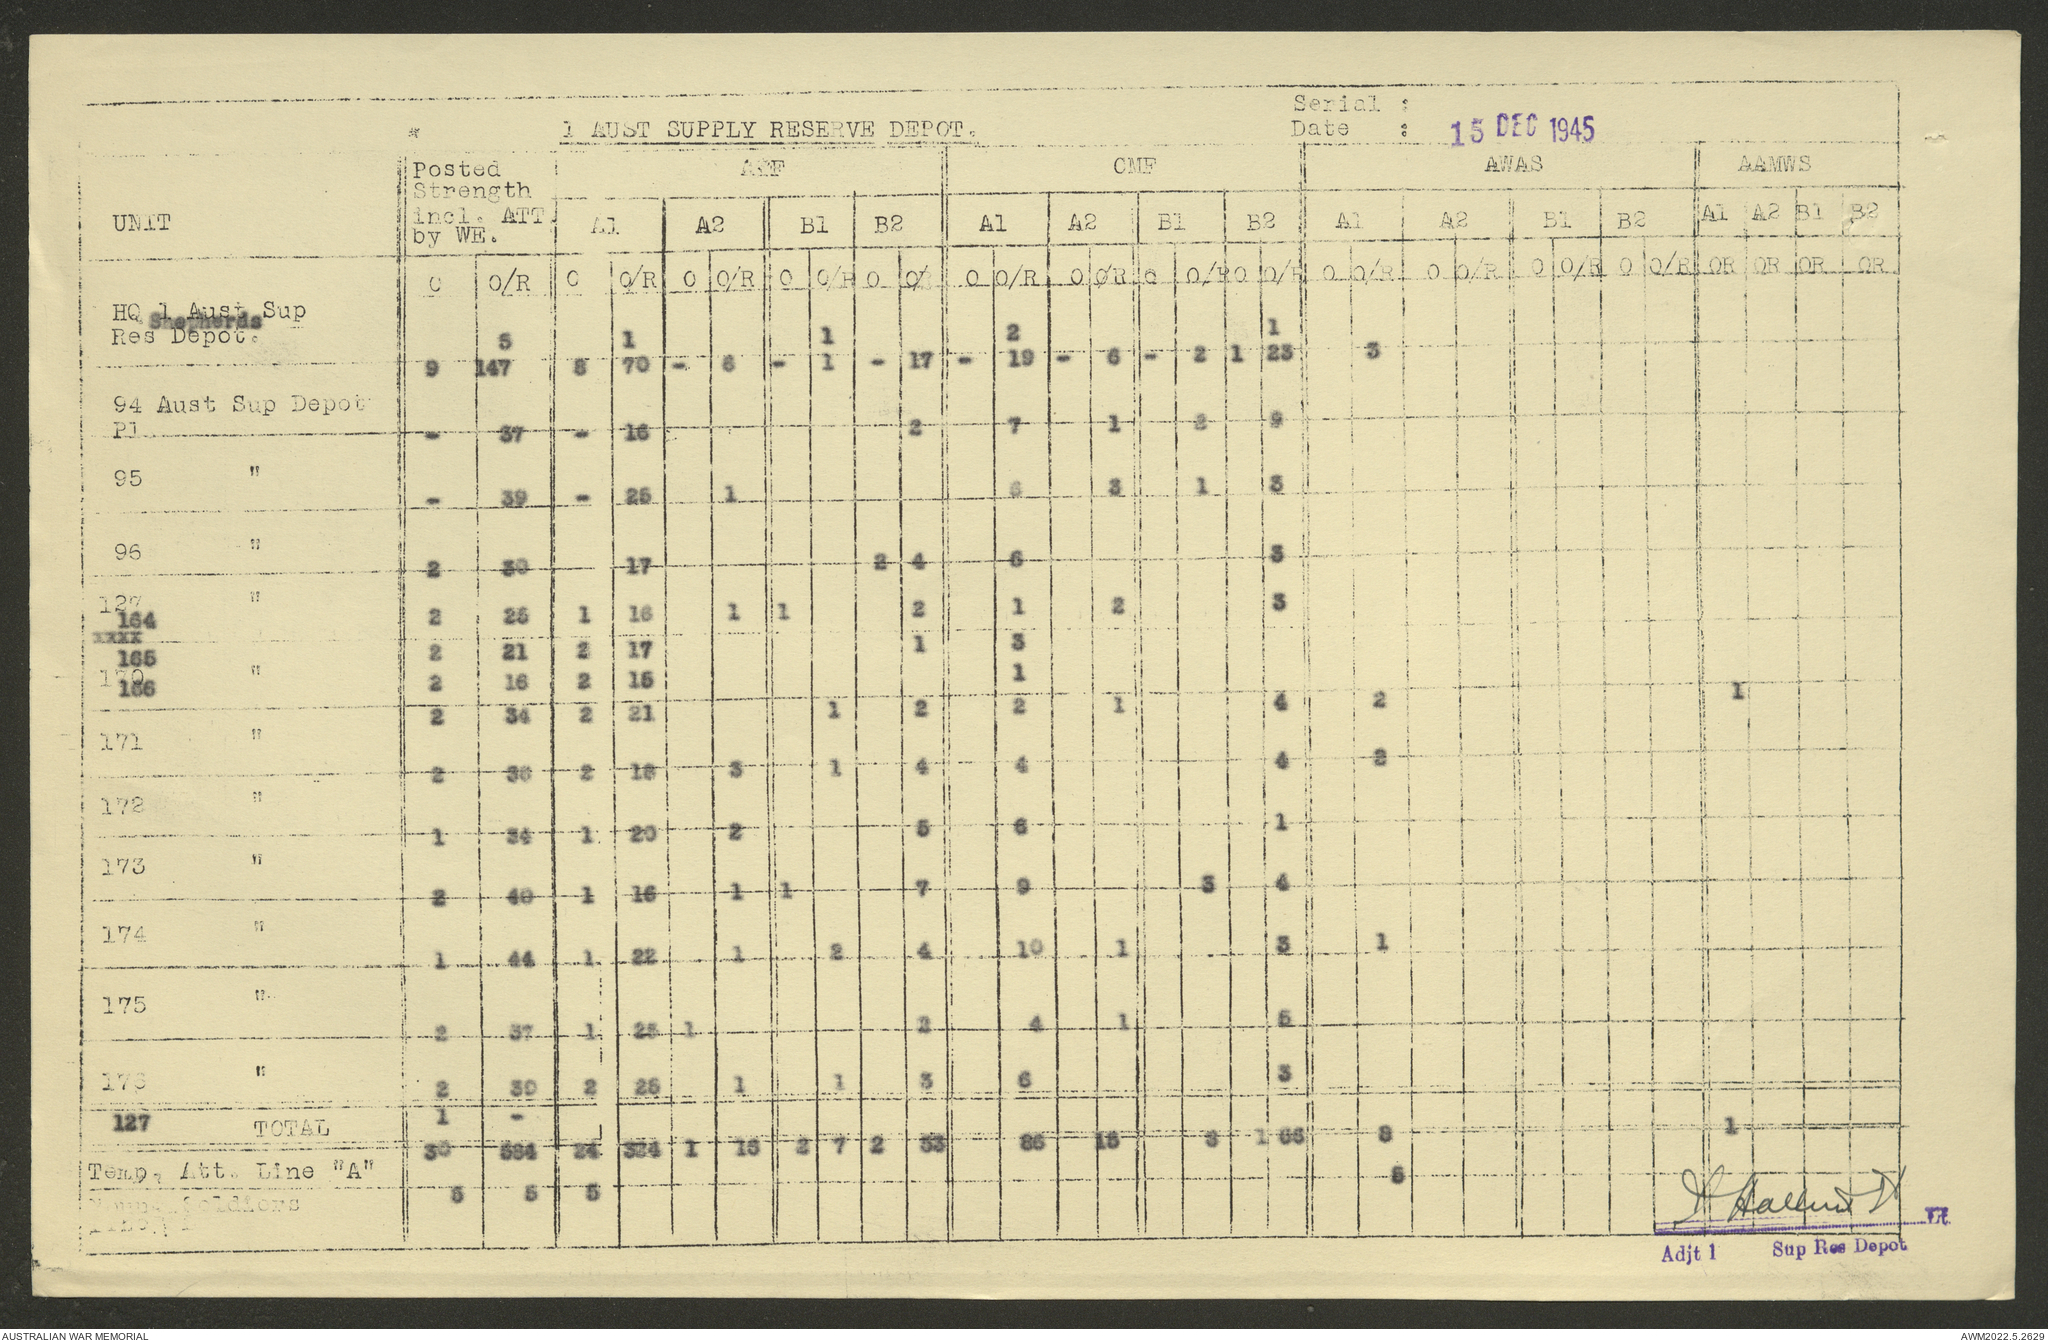 Serial :
* 1 AUST SUPPLY RESERVE DEPOT. Date : 15 DEC 1945
Posted Strength incl. ATT by WE. AIF CMF AWAS AAMWS
UNIT A1 A2 B1 B2 A1 A2 B1 B2 A1 A2 B1 B2 A1 A2 B1 B2
O O/R O O/R O O/R O O/R O O/ O O/R O O/R O O/R O O/R O O/R O O/R O O/R O O/R OR OR OR OR
HQ 1 Aust Sup
Shepherds 5 1 1 2 1
Res Depot.
9 147 8 70 - 6 - 1 - 17 - 19 - 6 - 2 1 23 3
94 Aust Sup Depot
Pl - 37 - 16 2 7 1 2 9
95 " - 39 - 25 1 6 3 1 3
96 " 2 30 17 2 4 6 3
127 "
164 2 25 1 16 1 1 2 1 2 3
xxxx
165 2 21 2 17 1 3
170 " 2 16 2 15 1
166
2 34 2 21 1 2 2 1 4 2 1
171 " 2 36 2 18 3 1 4 4 4 2
172 " 1 34 1 20 2 5 6 1
173 " 2 40 1 16 1 1 7 9 3 4
174 " 1 44 1 22 1 2 4 10 1 3 1
175 " 2 37 1 25 1 2 4 1 5
176 " 2 39 2 25 1 1 3 6 3
127 1 -
TOTAL 30 584 24 324 1 16 2 7 2 53 86 15 8 1 66 8 1
Temp. Att. Line "A" 5
5 5 5
Soldiers
Lt
Adjt 1 Sup Res Depot
AUSTRALIAN WAR MEMORIAL AWM2022.5.2629